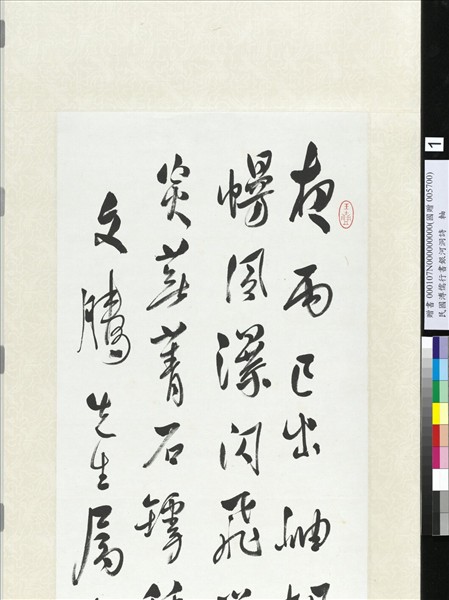 夜雨已出岫
幔風瀑閃飛
菁石
文騰先生屬
1
贈書 000107N000000000(國贈 005700)
民國溥儒行書銀河洞詩 軸